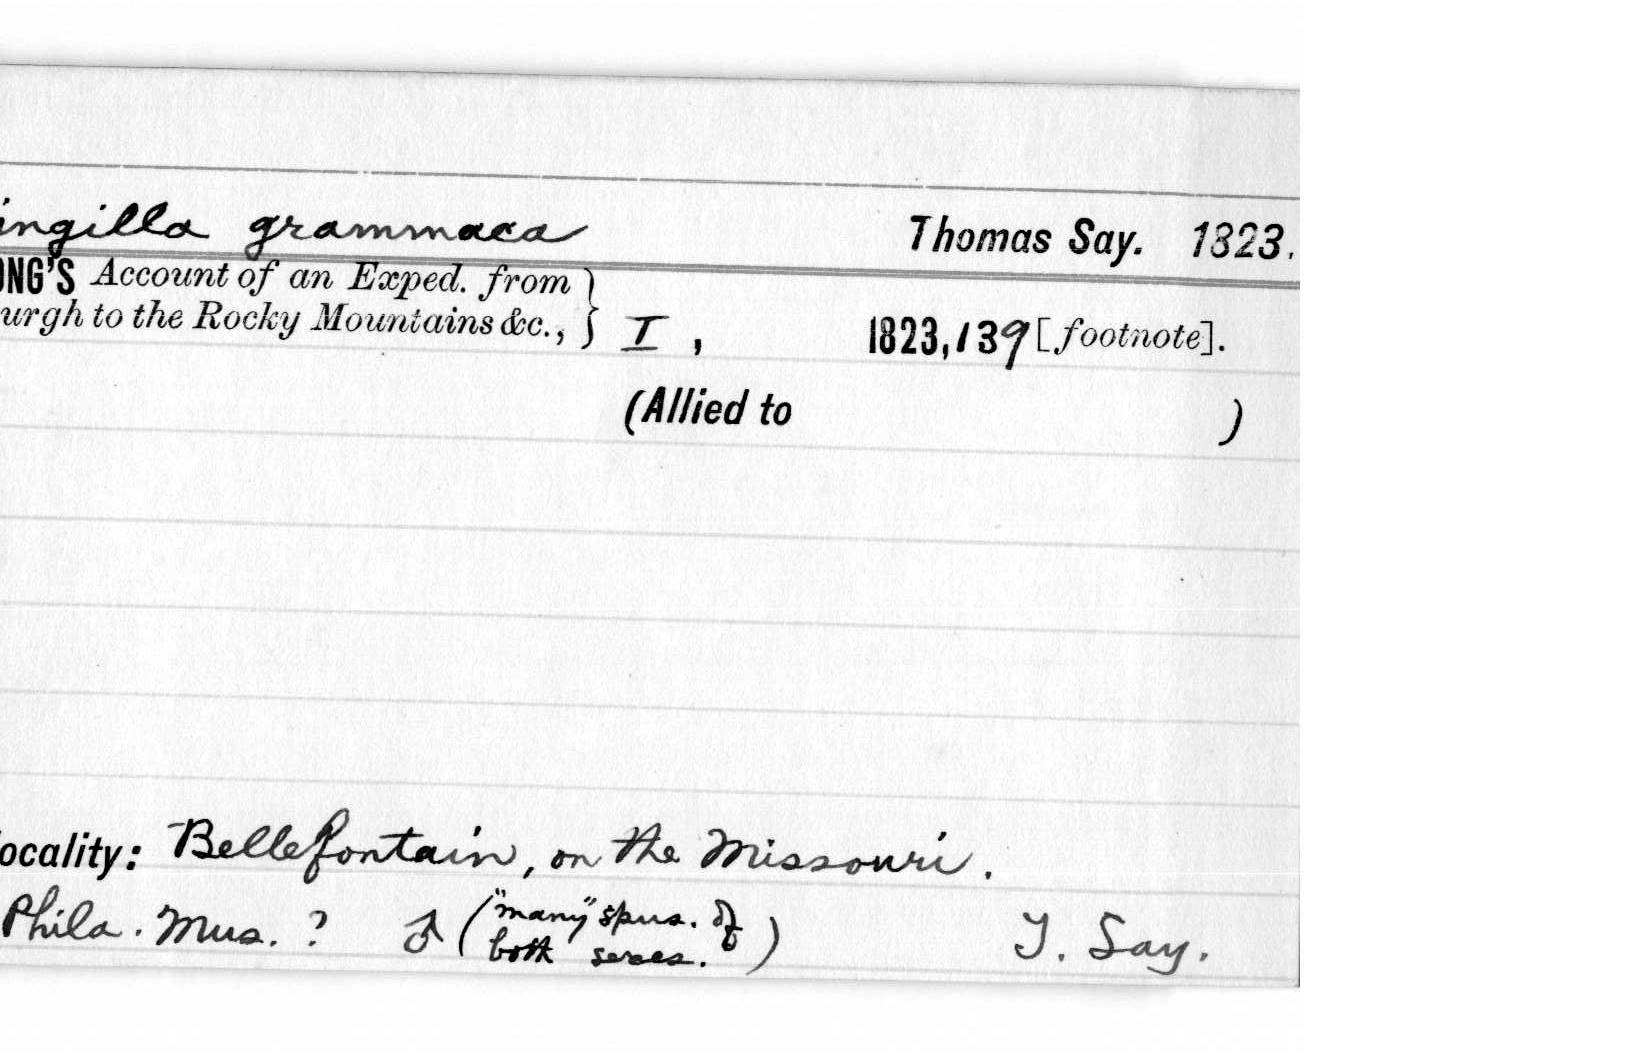 ingilla grammaca Thomas Say. 1823.
ONG'S Account of an Exped. from
urgh to the Rocky Mountains &c., } I, 1823, 139 [footnote].
(Allied to )
ocality: Bellefontain, on the Missouri.
Phila. Mus. ? ♂ ("many" spns. of
both sexes.) T. Say.